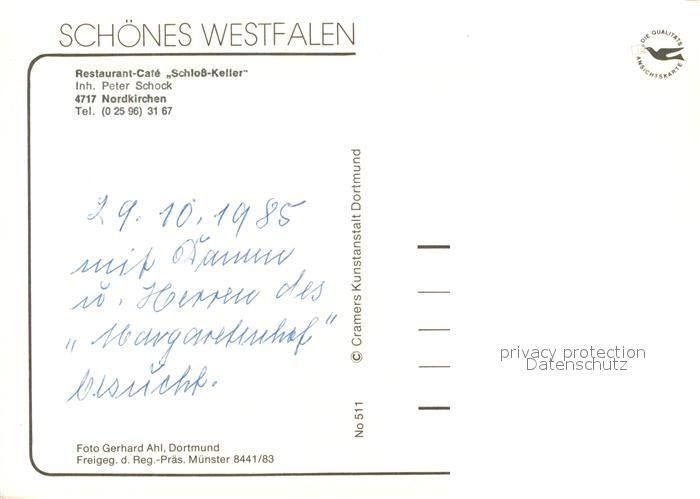 SCHÖNES WESTFALEN
DIE QUALITÄTS
ANSICHTSKARTE
Restaurant-Café „Schloß-Keller"
Inh. Peter Schock
4717 Nordkirchen
Tel. (0 25 96) 31 67
29.10.1985
mit Damen
u. Herren des
"Margaretenhof"
besucht.
© Cramers Kunstanstalt Dortmund
No 511
privacy protection
Datenschutz
Foto Gerhard Ahl, Dortmund
Freigeg. d. Reg.-Präs. Münster 8441/83